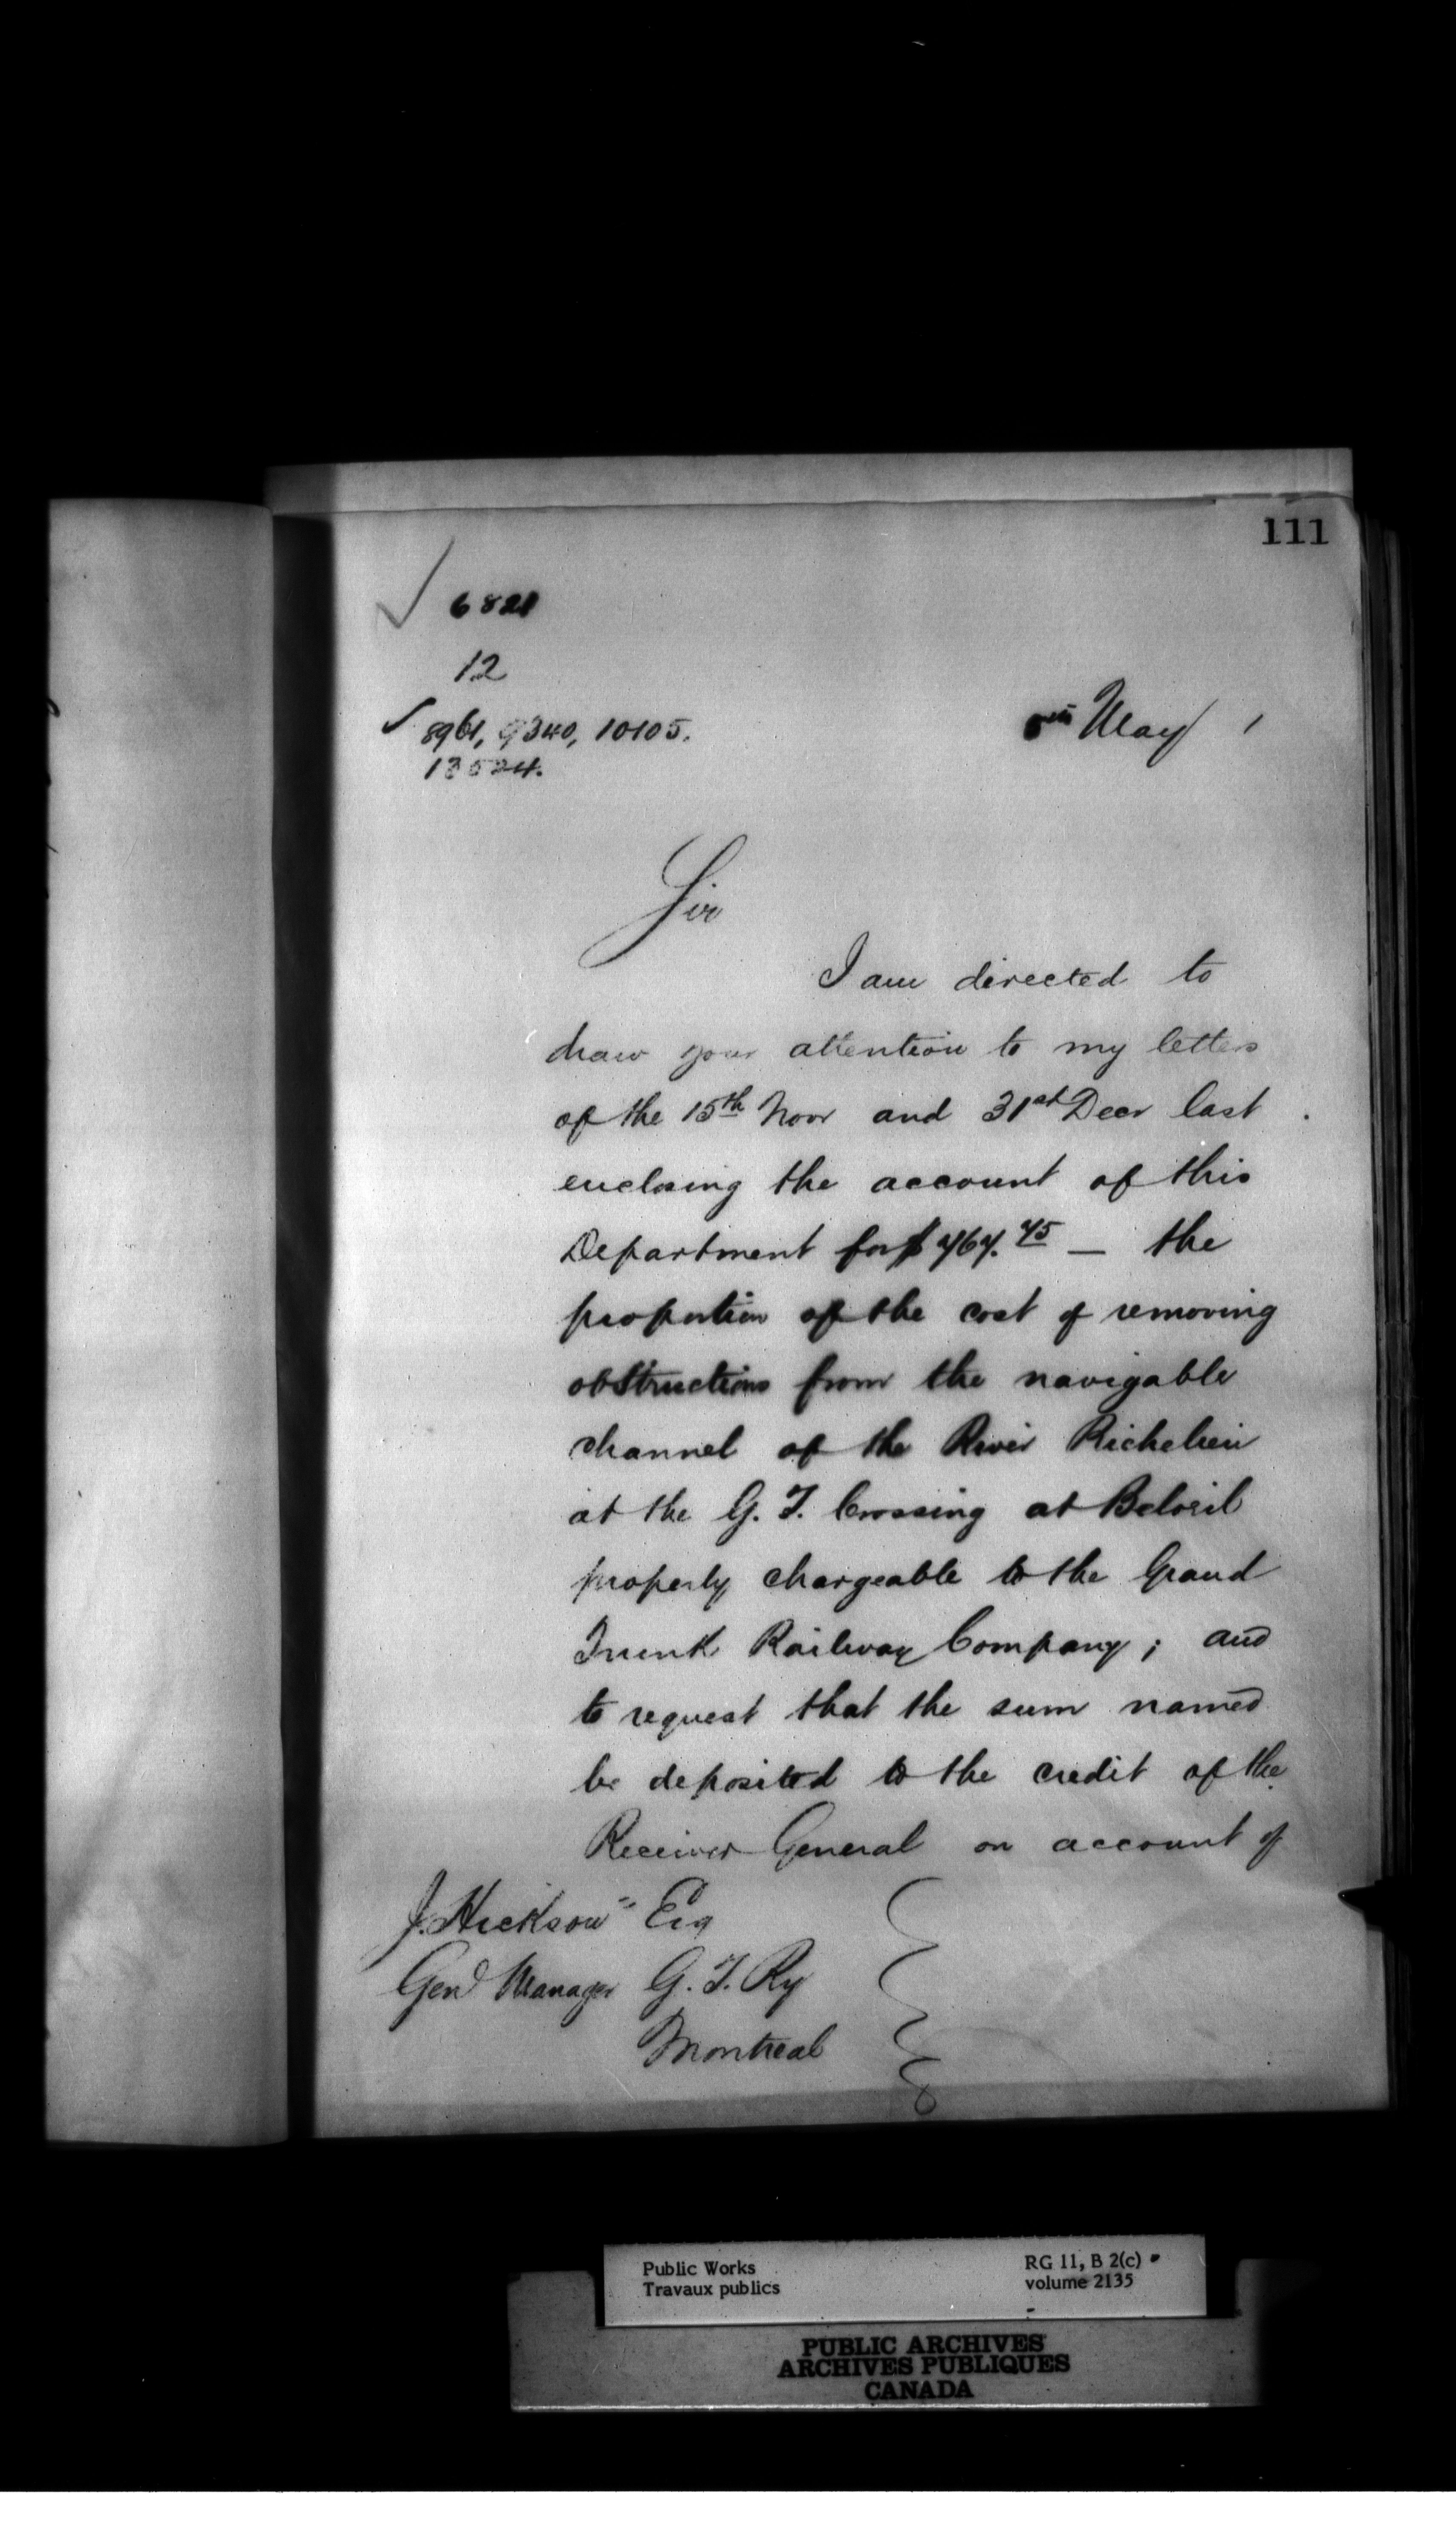 111
6821
12
8961, 9340, 10105.
13524.
May 1
Sir
I am directed to
draw your attention to my letters
of the 15th Novr and 31st Decr last
enclosing the account of this
Department for $767.45 — the
proportion of the cost of removing
obstructions from the navigable
channel of the River Richelieu
at the G. T. Crossing at Beloeil
properly chargeable to the Grand
Trunk Railway Company; and
to request that the sum named
be deposited to the credit of the
Receiver General on account of
J. Hickson Esq
Genl Manager G. T. Ry
Montreal
Public Works
Travaux publics
RG 11, B 2(c)
volume 2135
PUBLIC ARCHIVES
ARCHIVES PUBLIQUES
CANADA